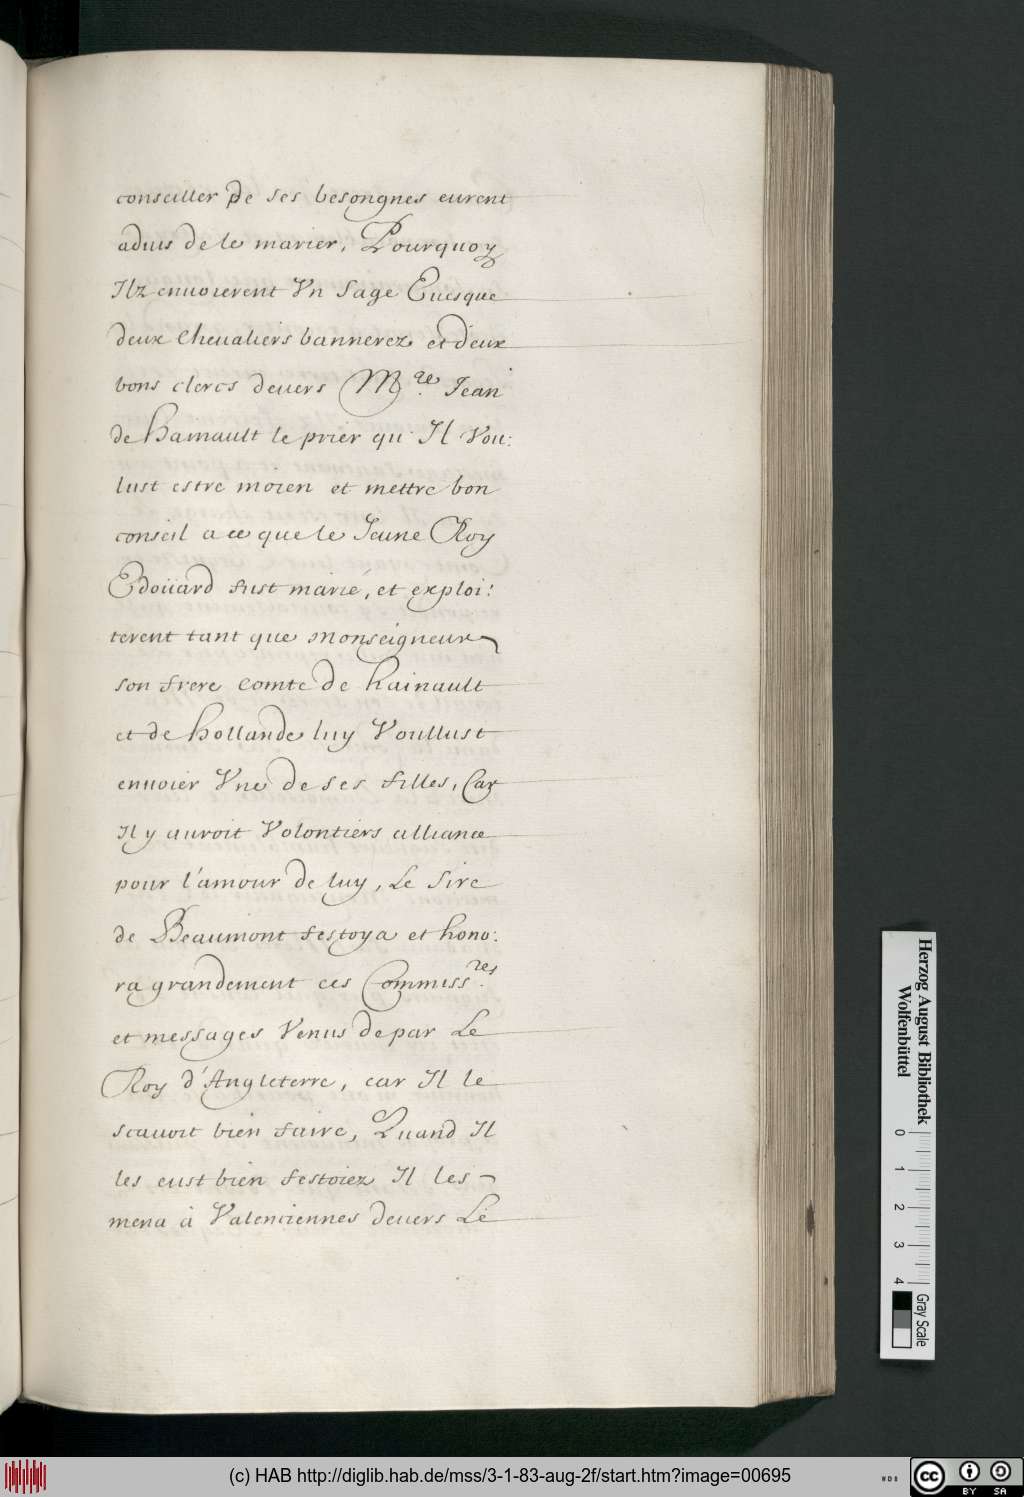 conseiller de ses besongnes eurent
aduis de le marier, Pourquoy
Ilz enuoierent Vn sage Euesque
deux cheualiers bannerez et deux
bons clercs deuers M.re Jean
de hainault le prier qu'Il Vou:
lust estre moien et mettre bon
conseil a ce que le Jeune Roy
Edoüard fust marié, et exploi:
terent tant que Monseigneur
son frere comte de hainault
et de hollande luy Voullust
enuoier Vne de ses filles, Car
Il y auroit Volontiers alliance
pour l'amour de luy, Le Sire
de Beaumont festoya et hono:
ra grandement ces Commiss.res
et messages Venus de par Le
Roy d'Angleterre, car Il le
scauoit bien faire, Quand Il
les eust bien festoiez Il les
mena à Valenciennes deuers Le
Herzog August Bibliothek
Wolfenbüttel
0 1 2 3 4
Gray Scale
(c) HAB http://diglib.hab.de/mss/3-1-83-aug-2f/start.htm?image=00695
WDB
cc BY SA